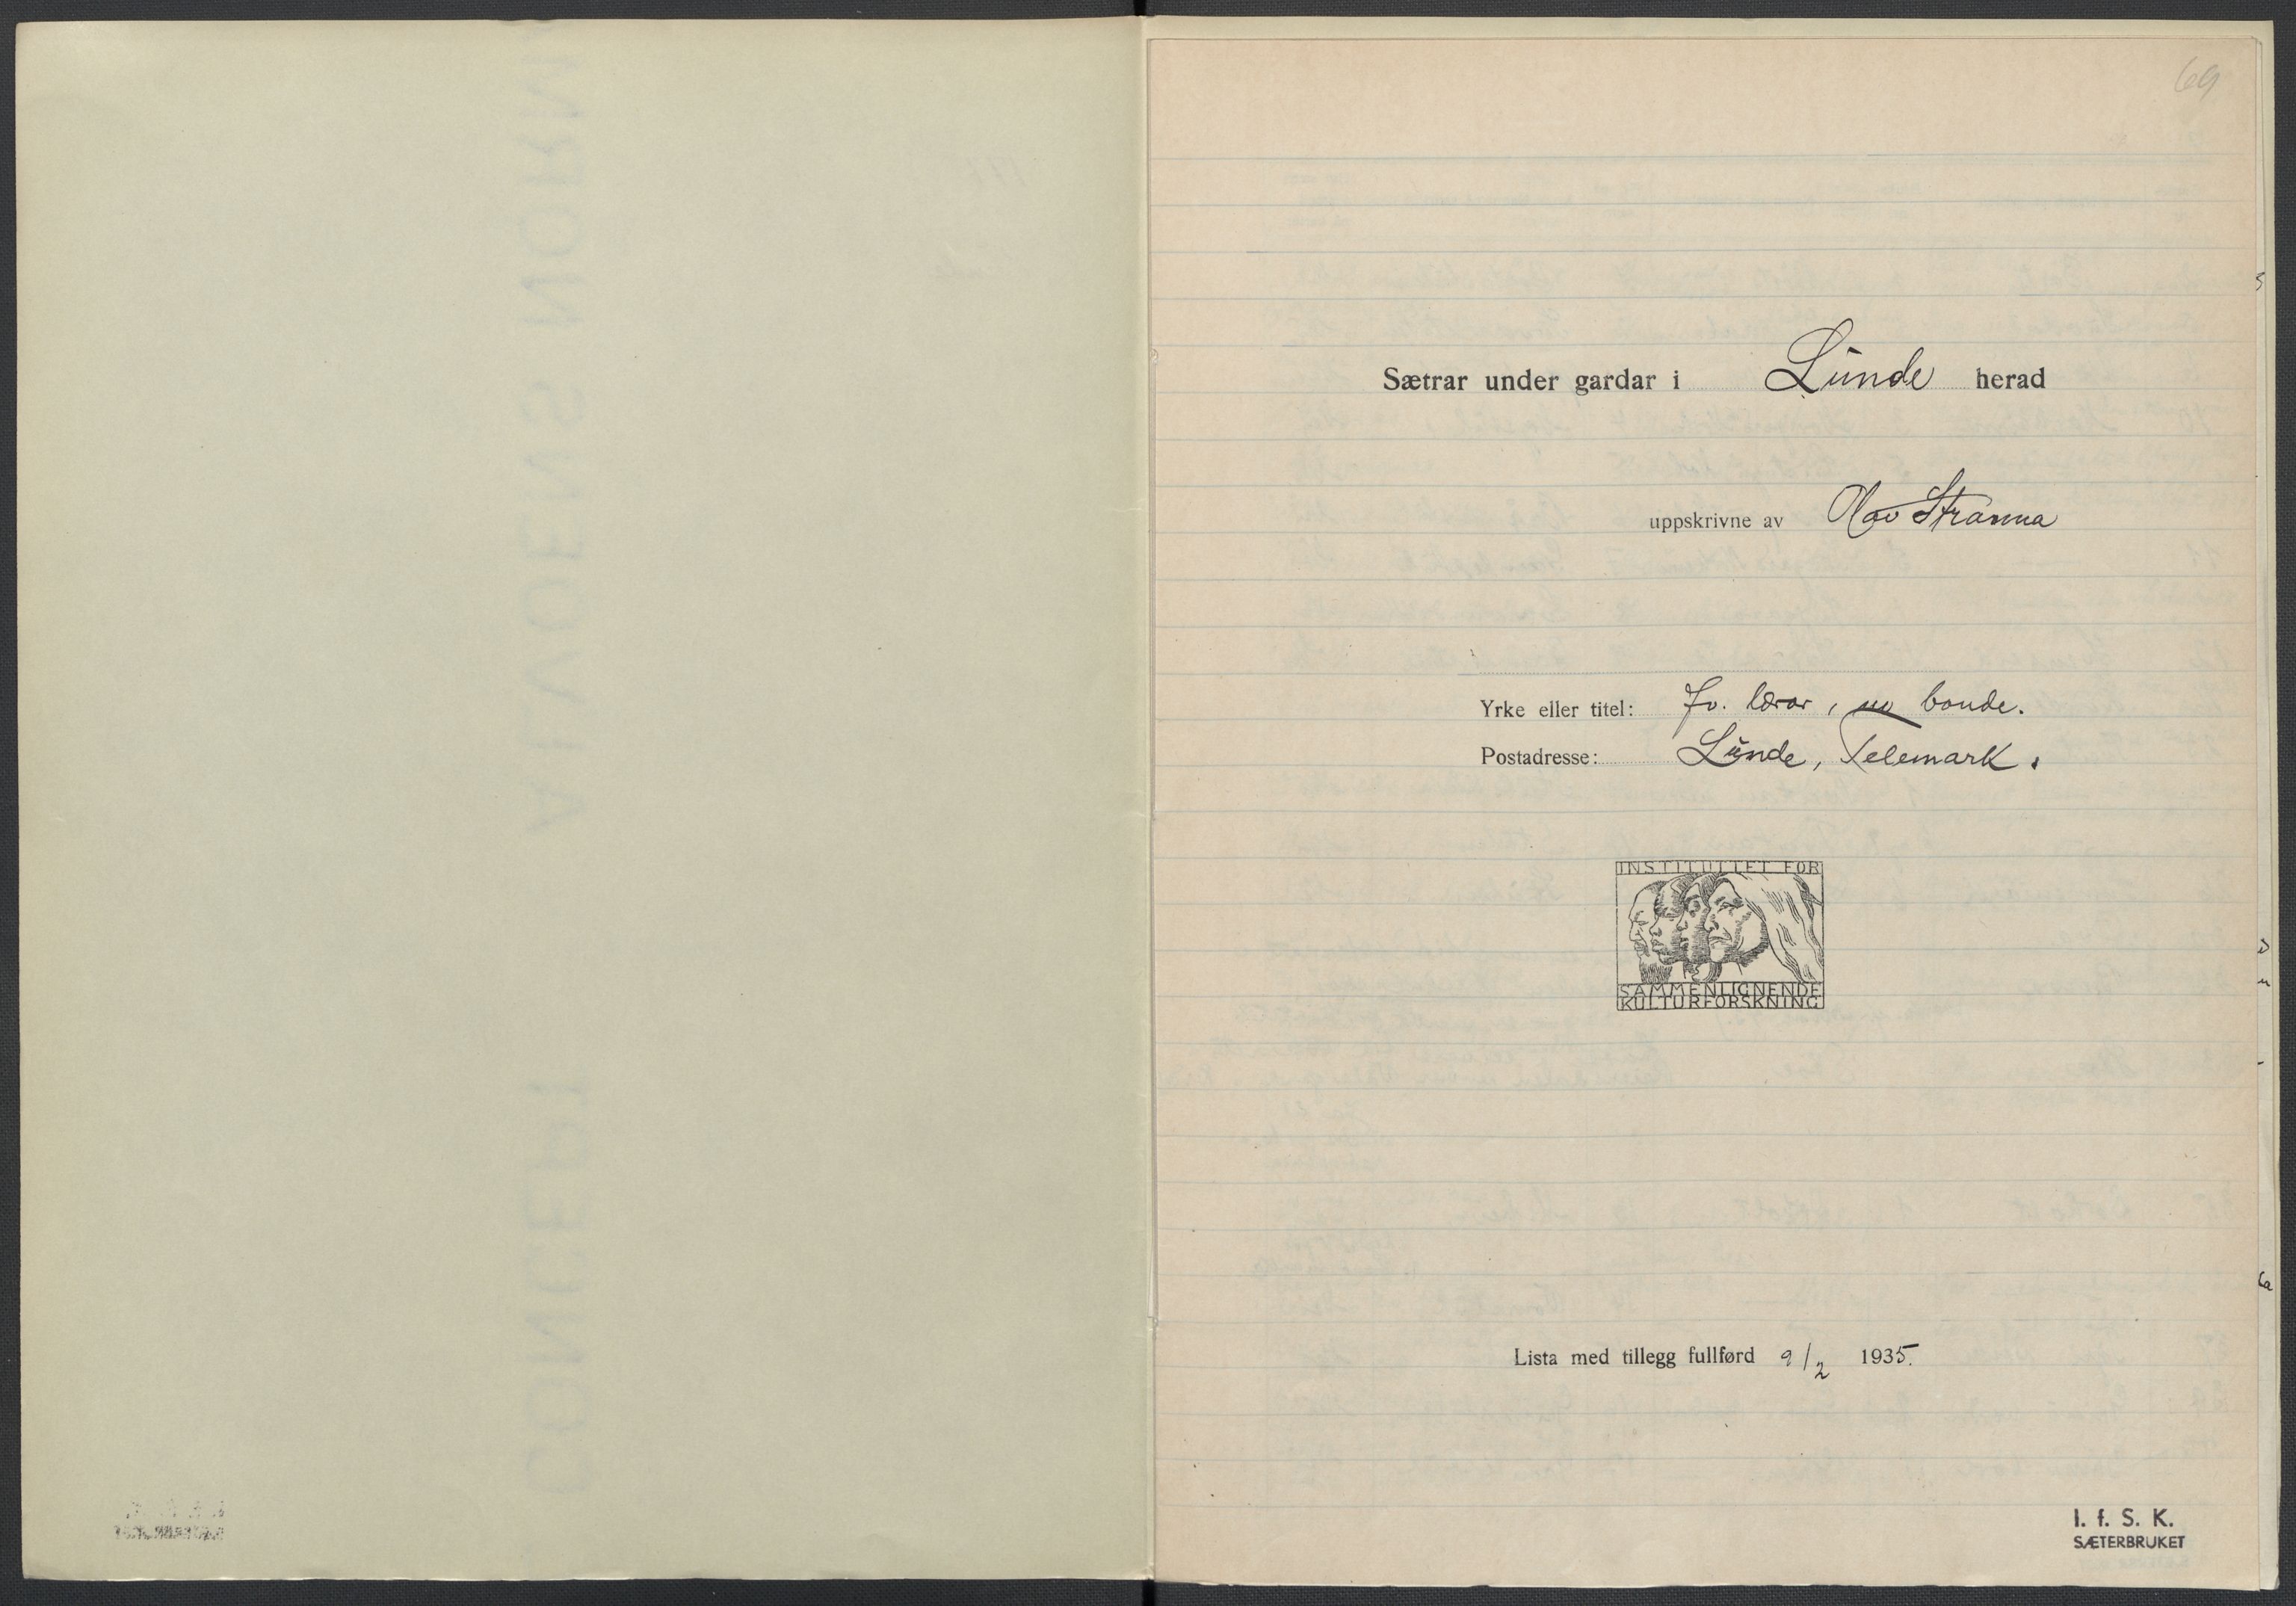 69
Sætrar under gardar i Lunde herad
uppskrivne av Olav Stranna
Yrke eller titel: Fv. lærar, no bonde.
Postadresse: Lunde, Telemark.
INSTITUTTET FOR
SAMMENLIGNENDE
KULTURFORSKNING
Lista med tillegg fullførd 9/2 1935.
I. f. S. K.
SÆTERBRUKET